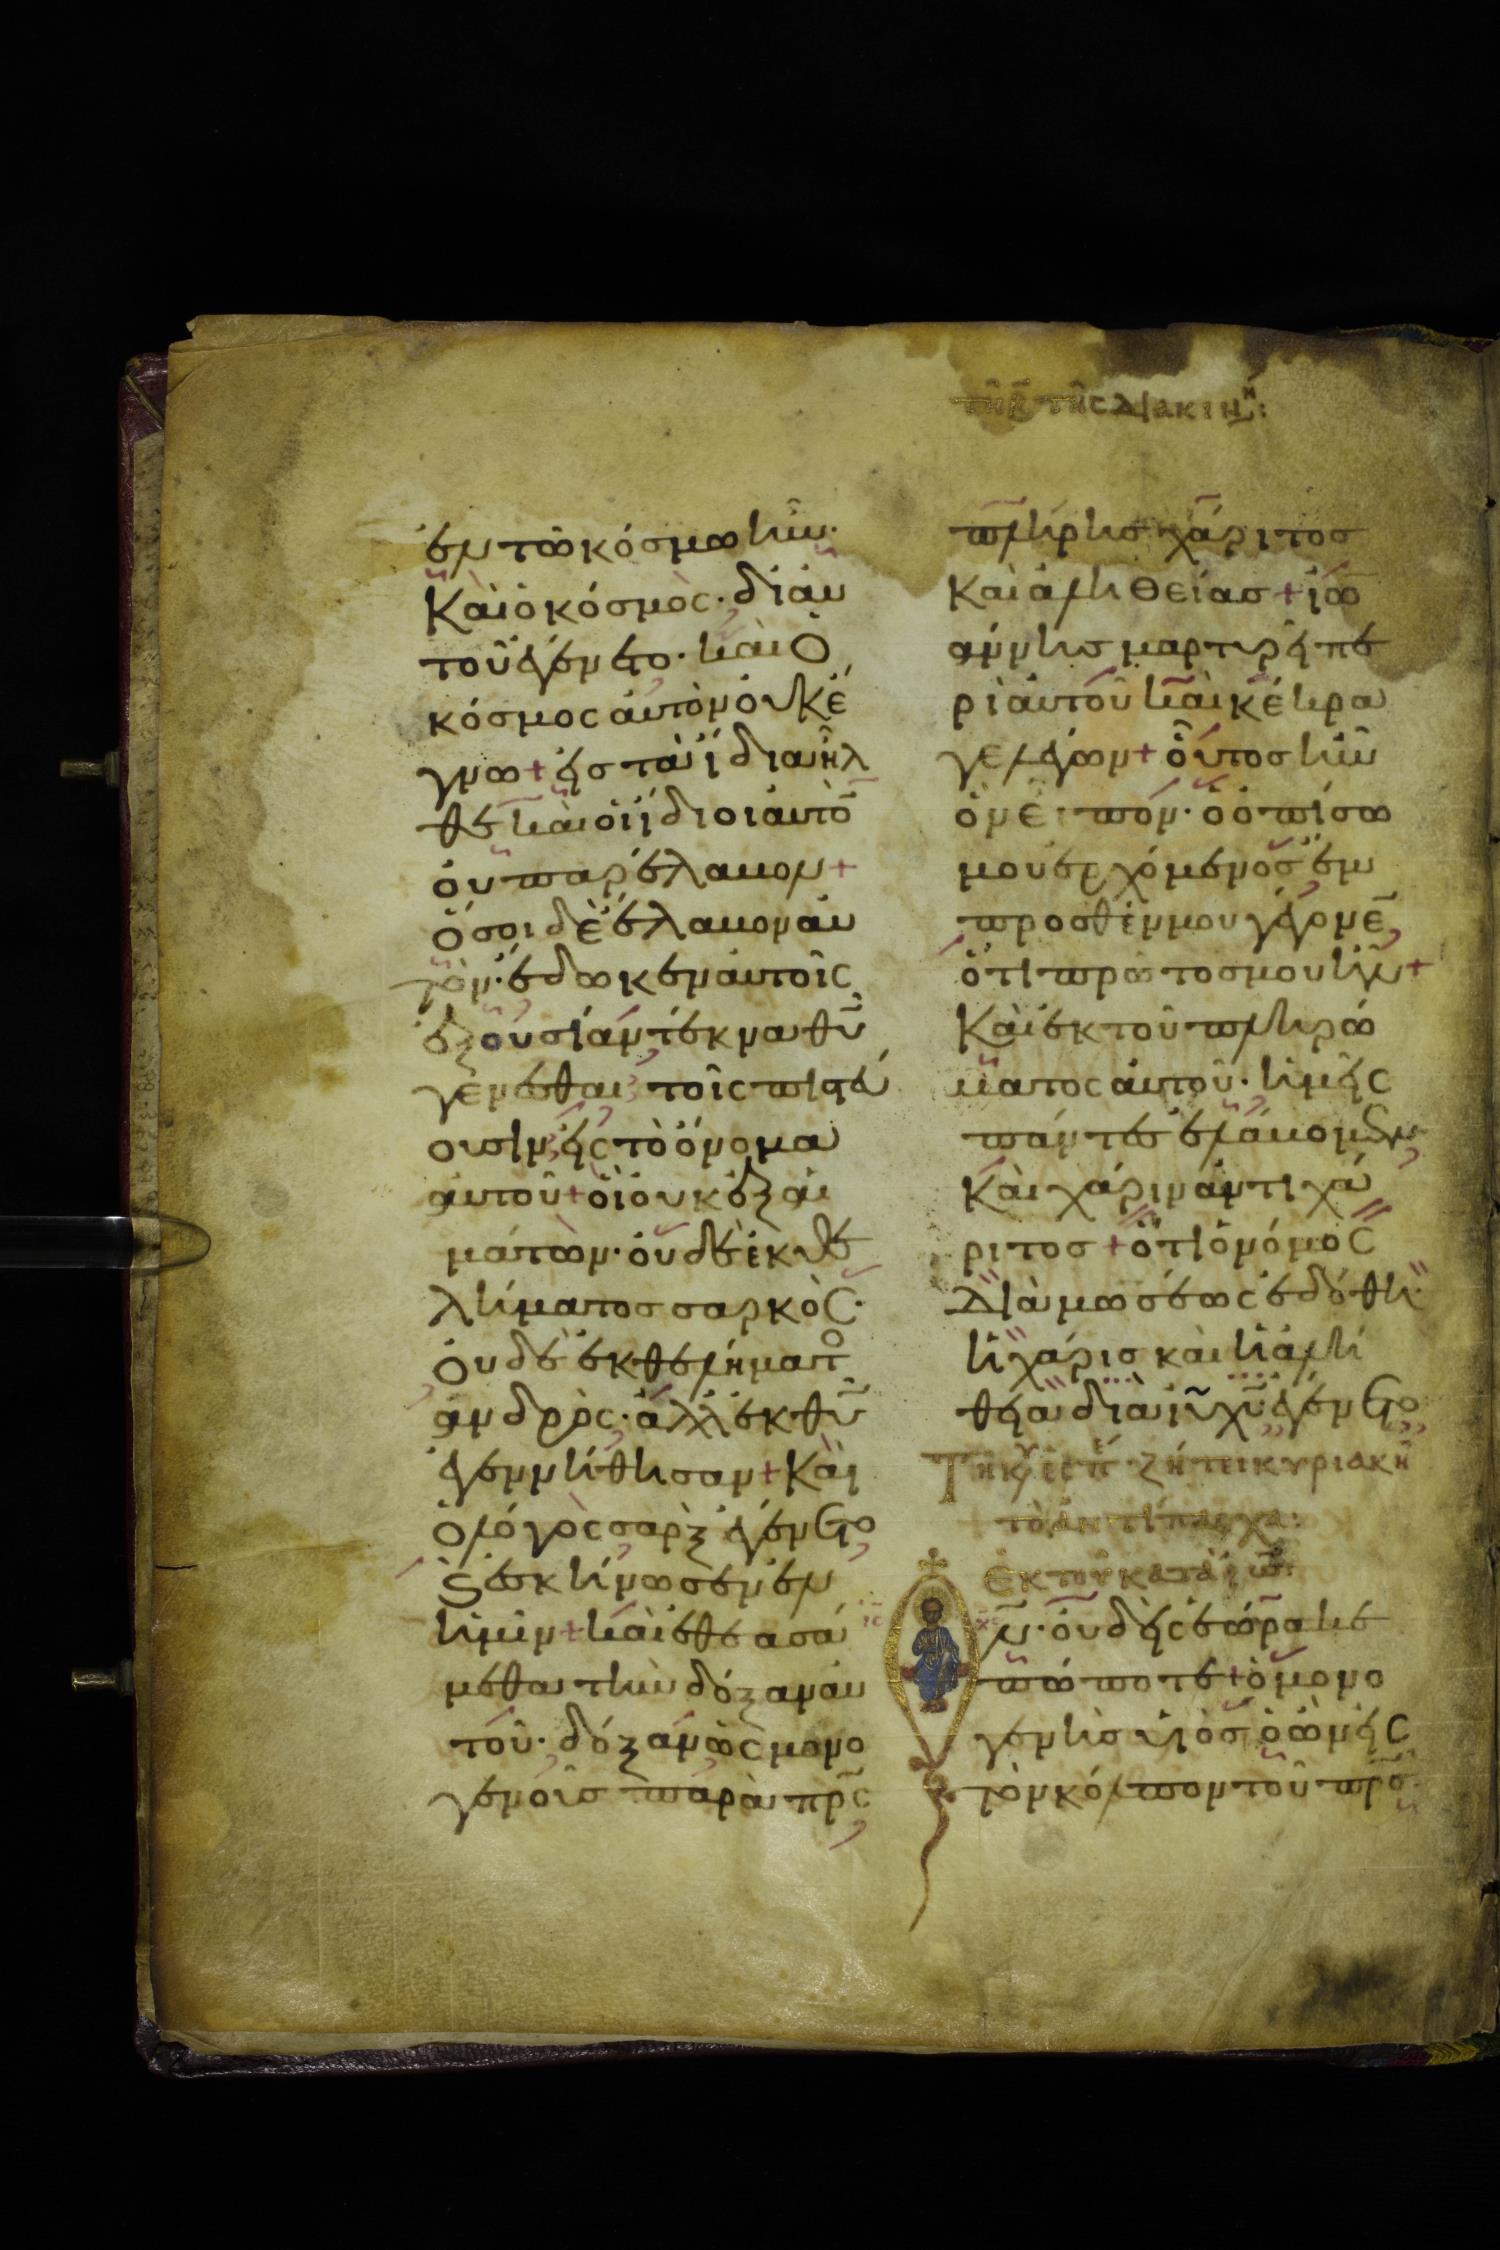 τῆ β τῆς διακινη:
ἐν τῶ κόσμω ἦν·
Καὶ ὁ κόσμος· δι' αυ
τοῦ ἐγένετο· καὶ Ὁ
κόσμος ἀυτὸν ὀυκ ἔ
γνω + ἐις τὰ ΐδια ἦλ
θε καὶ ὁι ΐδιοι ἀυτὸ
ὀυ παρέλαβον +
Ὅσοι δὲ ἔλαβον ἀυ
τὸν· ἔδωκεν ἀυτοῖς
ἐξουσίαν τέκνα θῦ
γενέσθαι τοῖς πιστέυ
ουσιν ἐις τὸ ὄνομα
ἀυτοῦ + ὁι ὀυκ ἐξ αἱ
μάτων· ὀυδὲ ἐκ θε
λήματος σαρκὸς·
Ὀυδὲ ἐκ θελήματο
ἀνδρὸς· ἀλλ' ἐκ θῦ
ἐγεννήθησαν + Καὶ
Ὁ λόγος σαρξ ἐγένετο
Καὶ ἐσκήνωσεν ἐν
ἡμῖν + καὶ ἐθεασά
μεθα τὴν δόξαν ἀυ
τοῦ· δόξαν ὡς μονο
γενοῦς παρὰ πρς
πλήρης χάριτος
Καὶ ἀληθείας + ϊω
άννης μαρτυρεῖ πε
ρὶ ἀυτοῦ καὶ κέκρα
γε λέγων + οὗτος ἦν
ὃν Εἶπον· ὁ ὀπίσω
μου ἐρχόμενος ἔμ
προσθέν μου γέγονε
ὅτι πρῶτος μου ἦν +
Καὶ ἐκ τοῦ πληρώ
ματος ἀυτοῦ· ἡμεῖς
πάντες ἐλάβομεν
Καὶ χάριν ἀντὶ χά
ριτος + ὅτι ὁ νόμος
Διὰ μωσέως ἐδόθη·
ἡ χάρις καὶ ἡ ἀλή
θεια διὰ ιυ χυ ἐγένετο
Τῆ κυριακῆ
τὸ ἀντίπασχα:
Ἐκ τοῦ κατὰ ϊω:
ις χς
θν· ὀυδεὶς ἑώρακε
πώποτε + ὁ μονο
γενὴς υἱὸς ὁ ὢν εἰς
τὸν κόλπον τοῦ πρσ